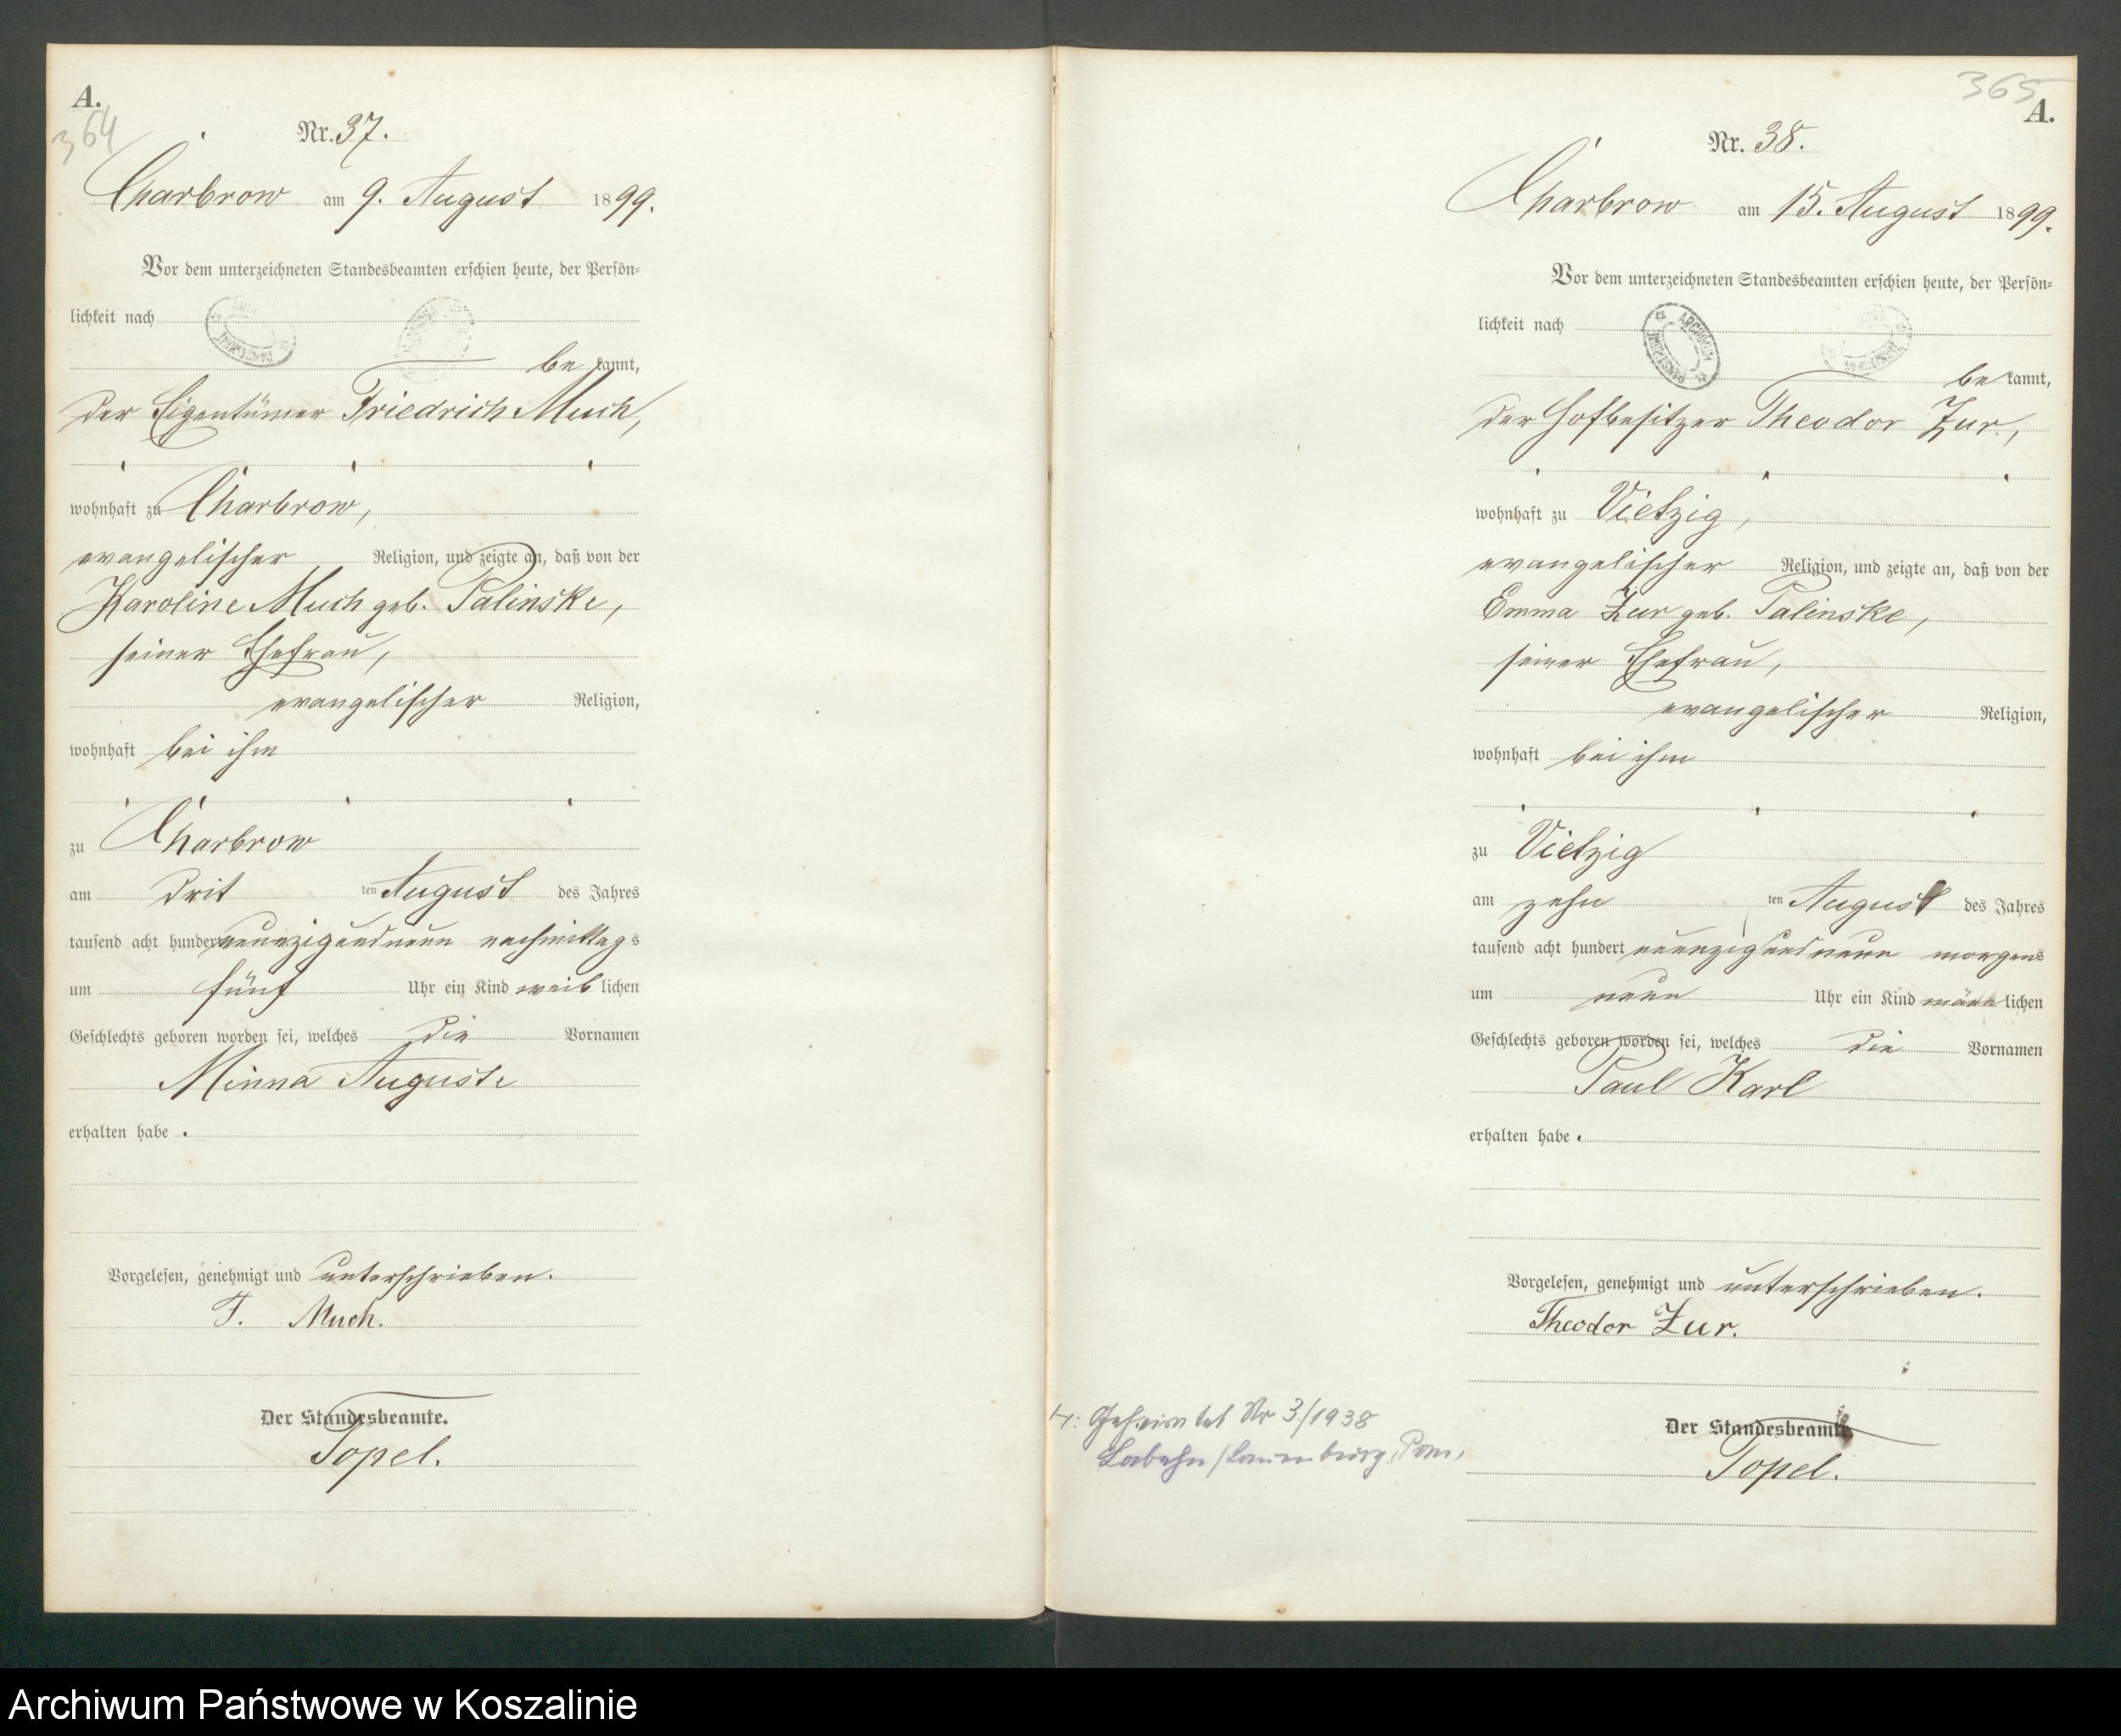 A.
364
Nr. 37.
Charbrow am 9. August 1899.
Vor dem unterzeichneten Standesbeamten erschien heute, der Persön-
lichkeit nach
be kannt,
der Eigentümer Friedrich Much,
wohnhaft zu Charbrow,
evangelischer Religion, und zeigte an, daß von der
Karoline Much geb. Palinske,
seiner Ehefrau,
evangelischer Religion,
wohnhaft bei ihm
zu Charbrow
am dritten August des Jahres
tausend acht hundert neunzig und neun nachmittags
um fünf Uhr ein Kind weiblichen
Geschlechts geboren worden sei, welches die Vornamen
Minna Auguste
erhalten habe.
Vorgelesen, genehmigt und unterschrieben.
F. Much.
Der Standesbeamte.
Topel.
365
A.
Nr. 38.
Charbrow am 15. August 1899.
Vor dem unterzeichneten Standesbeamten erschien heute, der Persön-
lichkeit nach
ARCHIWUM
be kannt,
der Hofbesitzer Theodor Zur,
wohnhaft zu Vietzig,
evangelischer Religion, und zeigte an, daß von der
Emma Zur geb. Palinske,
seiner Ehefrau,
evangelischer Religion,
wohnhaft bei ihm
zu Vietzig
am zehnten August des Jahres
tausend acht hundert neunzig und neun morgens
um neun Uhr ein Kind männlichen
Geschlechts geboren worden sei, welches die Vornamen
Paul Karl
erhalten habe.
Vorgelesen, genehmigt und unterschrieben.
Theodor Zur.
Der Standesbeamte
Topel.
H: Geheiratet Nr 3/1938
Labehn/Lauenburg, Pom.
Archiwum Państwowe w Koszalinie